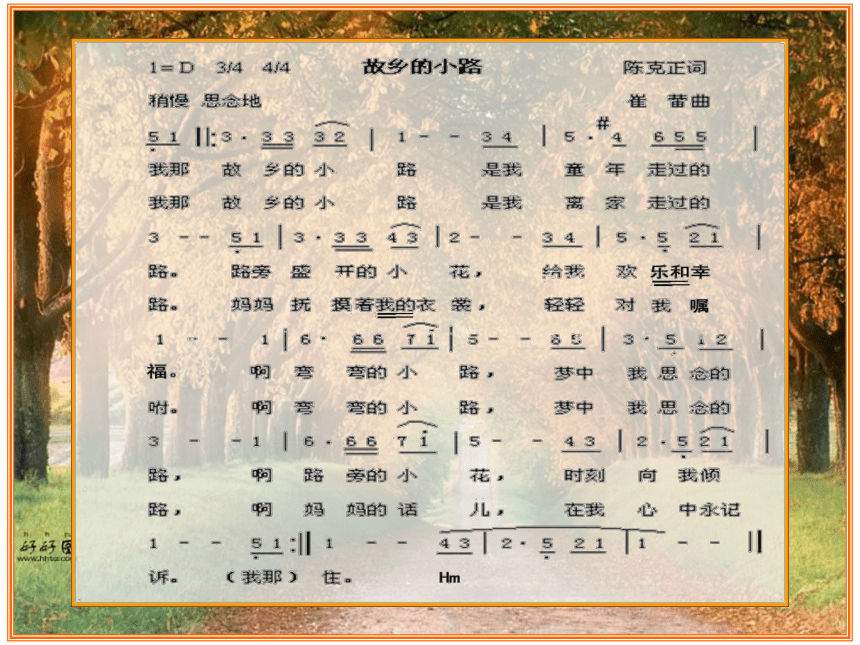 1=D 3/4 4/4 故乡的小路 陈克正词
稍慢 思念地 崔 蕾曲
5 1 ‖: 3 · 3 3 3 2 | 1 - - 3 4 | 5 · #4 6 5 5 |
我那 故 乡的 小 路 是我 童 年 走过的
我那 故 乡的 小 路 是我 离 家 走过的
3 - - 5 1 | 3 · 3 3 4 3 | 2 - - 3 4 | 5 · 5 2 1 |
路。 路旁 盛 开的 小 花， 给我 欢 乐和幸
路。 妈妈 抚 摸着我的衣 裳， 轻轻 对 我 嘱
1 - - 1 | 6 · 6 6 7 i | 5 - - 6 5 | 3 · 5 1 2 |
福。 啊 弯 弯的 小 路， 梦中 我 思 念的
咐。 啊 弯 弯的 小 路， 梦中 我 思 念的
3 - - 1 | 6 · 6 6 7 i | 5 - - 4 3 | 2 · 5 2 1 |
路， 啊 路 旁的 小 花， 时刻 向 我倾
路， 啊 妈 妈的 话 儿， 在我 心 中永记
1 - - 5 1 :‖ 1 - - 4 3 | 2 · 5 2 1 | 1 - - ‖
诉。 （我那） 住。 Hm